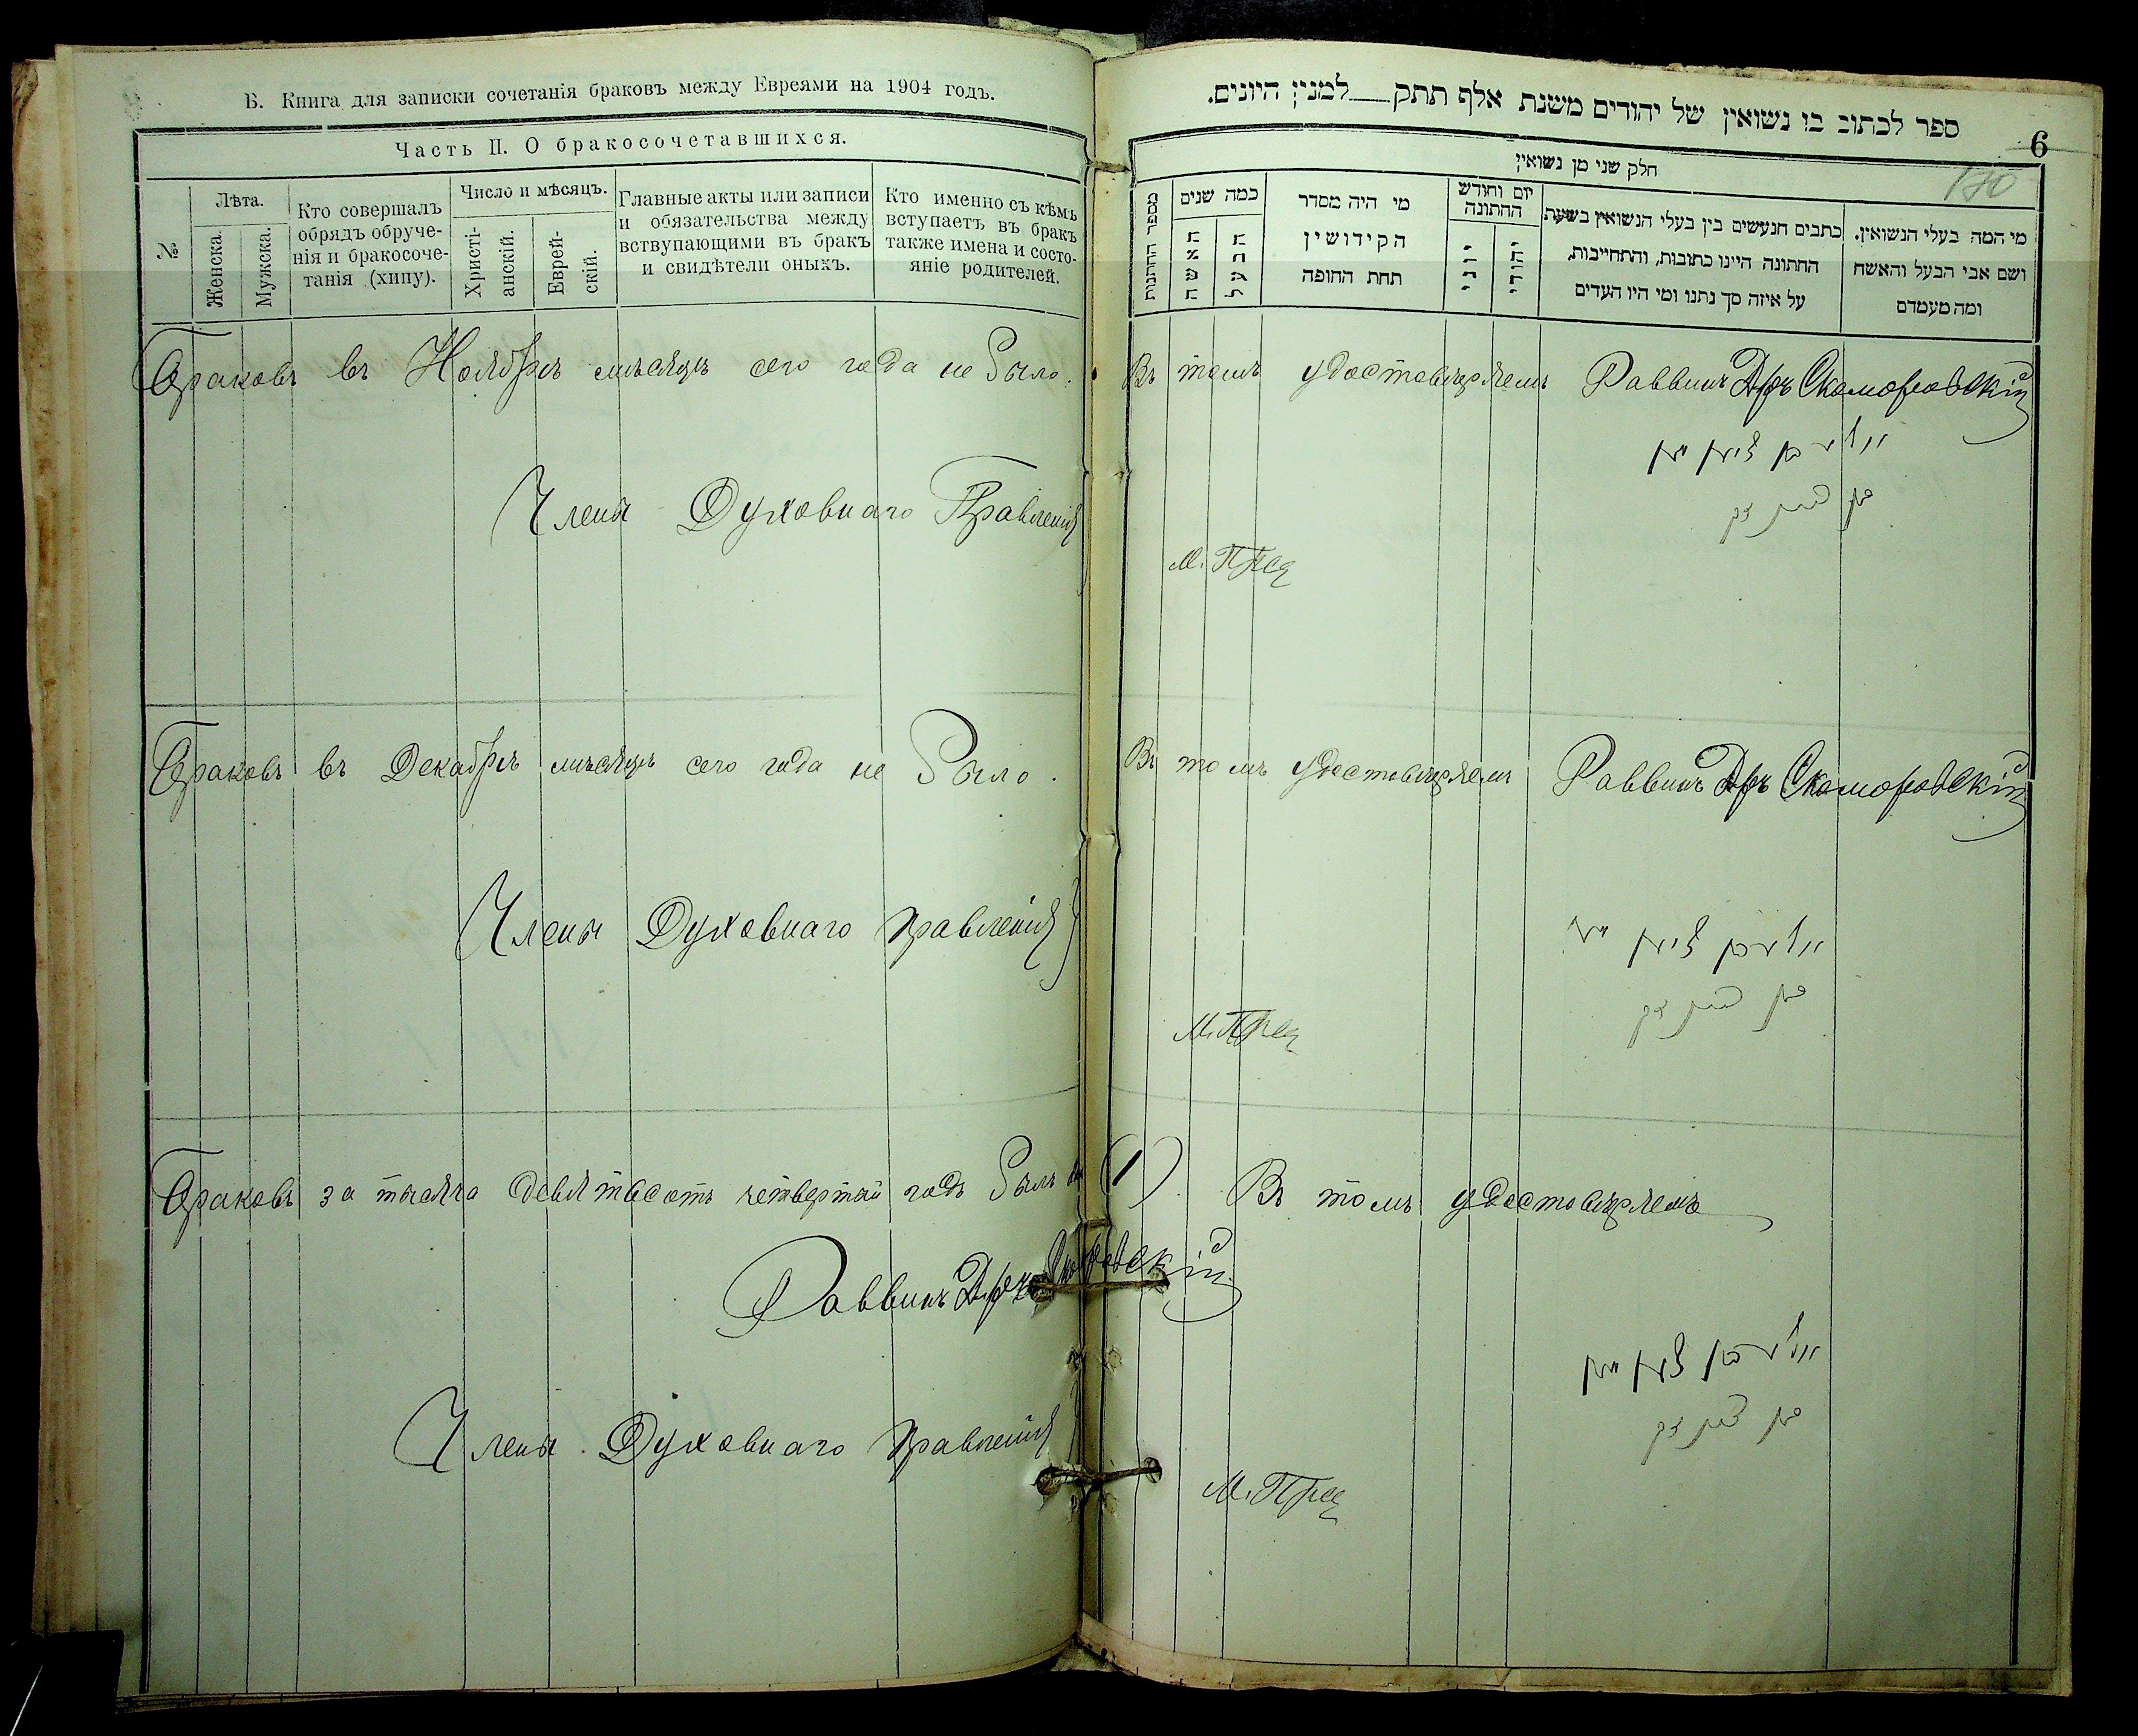 Б. Книга для записки сочетанія браковъ между Евреями на 1904 годъ.
Часть II. О бракосочетавшихся.
№
Лѣта.
Женска.
Мужска.
Кто совершалъ
обрядъ обруче-
нія и бракосоче-
танія (хипу).
Число и мѣсяцъ.
Христі-
анскій.
Еврей-
скій.
Главные акты или записи
и обязательства между
вствупающими въ бракъ
и свидѣтели оныхъ.
Кто именно съ кѣмъ
вступаетъ въ бракъ
также имена и состо-
яніе родителей.
Браковъ въ Ноябрѣ мѣсяцѣ сего года не было.
Члены Духовнаго Правленія
Браковъ въ Декабрѣ мѣсяцѣ сего года не было.
Члены Духовнаго Правленія
Браковъ за тысяча девятьсотъ четвертый годъ былъ (1). Въ томъ удостовѣряемъ
Раввинъ Д-ръ Скоморовскій
Члены Духовнаго Правленія
ספר לכתוב בו נשואין של יהודים משנת אלף תתק למנין היונים.
6
180
חלק שני מן נשואין
מספר החתונות
כמה שנים
האשה
הבעל
מי היה מסדר
הקידושין
תחת החופה
יום וחודש
החתונה
יוני
יהודי
כתבים הנעשים בין בעלי הנשואין בשעת
החתונה היינו כתובות, והתחייבות,
על איזה סך נתנו ומי היו העדים
מי המה בעלי הנשואין.
ושם אבי הבעל והאשה
ומה מעמדם
Въ томъ удостовѣряемъ Раввинъ Д-ръ Скоморовскій
Въ томъ удостовѣряемъ Раввинъ Д-ръ Скоморовскій